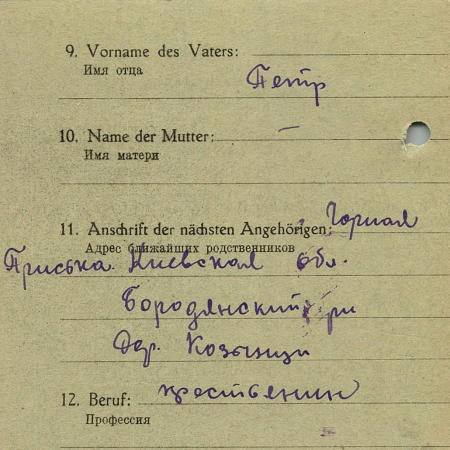 9. Vorname des Vaters:
Имя отца
Петр
10. Name der Mutter: —
Имя матери
11. Anschrift der nächsten Angehörigen: Горная
Адрес ближайших родственников
Приська Киевская обл.
Бородянский р-н
Дер. Козынци
12. Beruf: крестьянин
Профессия